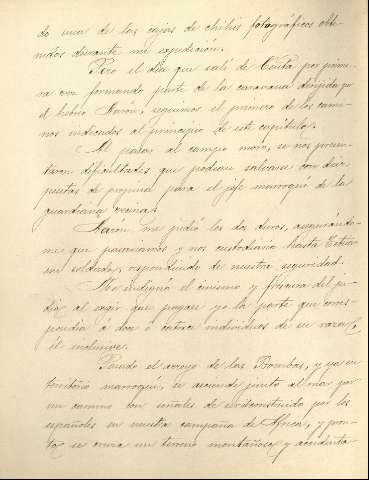 do una de las cajas de chilis fotográficos obte-
nidos durante mi expedición.
Pero el día que salí de Ceuta por prime-
ra vez formando parte de la caravana dirigida por
el hebreo Aarón, seguimos el primero de los cami-
nos indicados al principio de este capítulo.
Al pasar al campo moro, se nos presen-
taron dificultades que podían salvarse con dos
pesetas de propina para el jefe marroquí de la
guardia vecina.
Aarón me pidió los dos duros, asegurándo-
me que pasaríamos y nos custodiaría hasta Tetuán
un soldado, respondiendo de nuestra seguridad.
Me indignó el cinismo y frescura del ju-
dío al exigir que pagase yo la parte que corres-
pondía á doce ó catorce individuos de su raza,
él inclusive.
Pasado el arroyo de las Bombas, y ya en
territorio marroquí, se asciende junto al mar por
un camino con señales de ser construido por los
españoles en nuestra campaña de África, y pron-
to se cruza un terreno montañoso y accidenta-